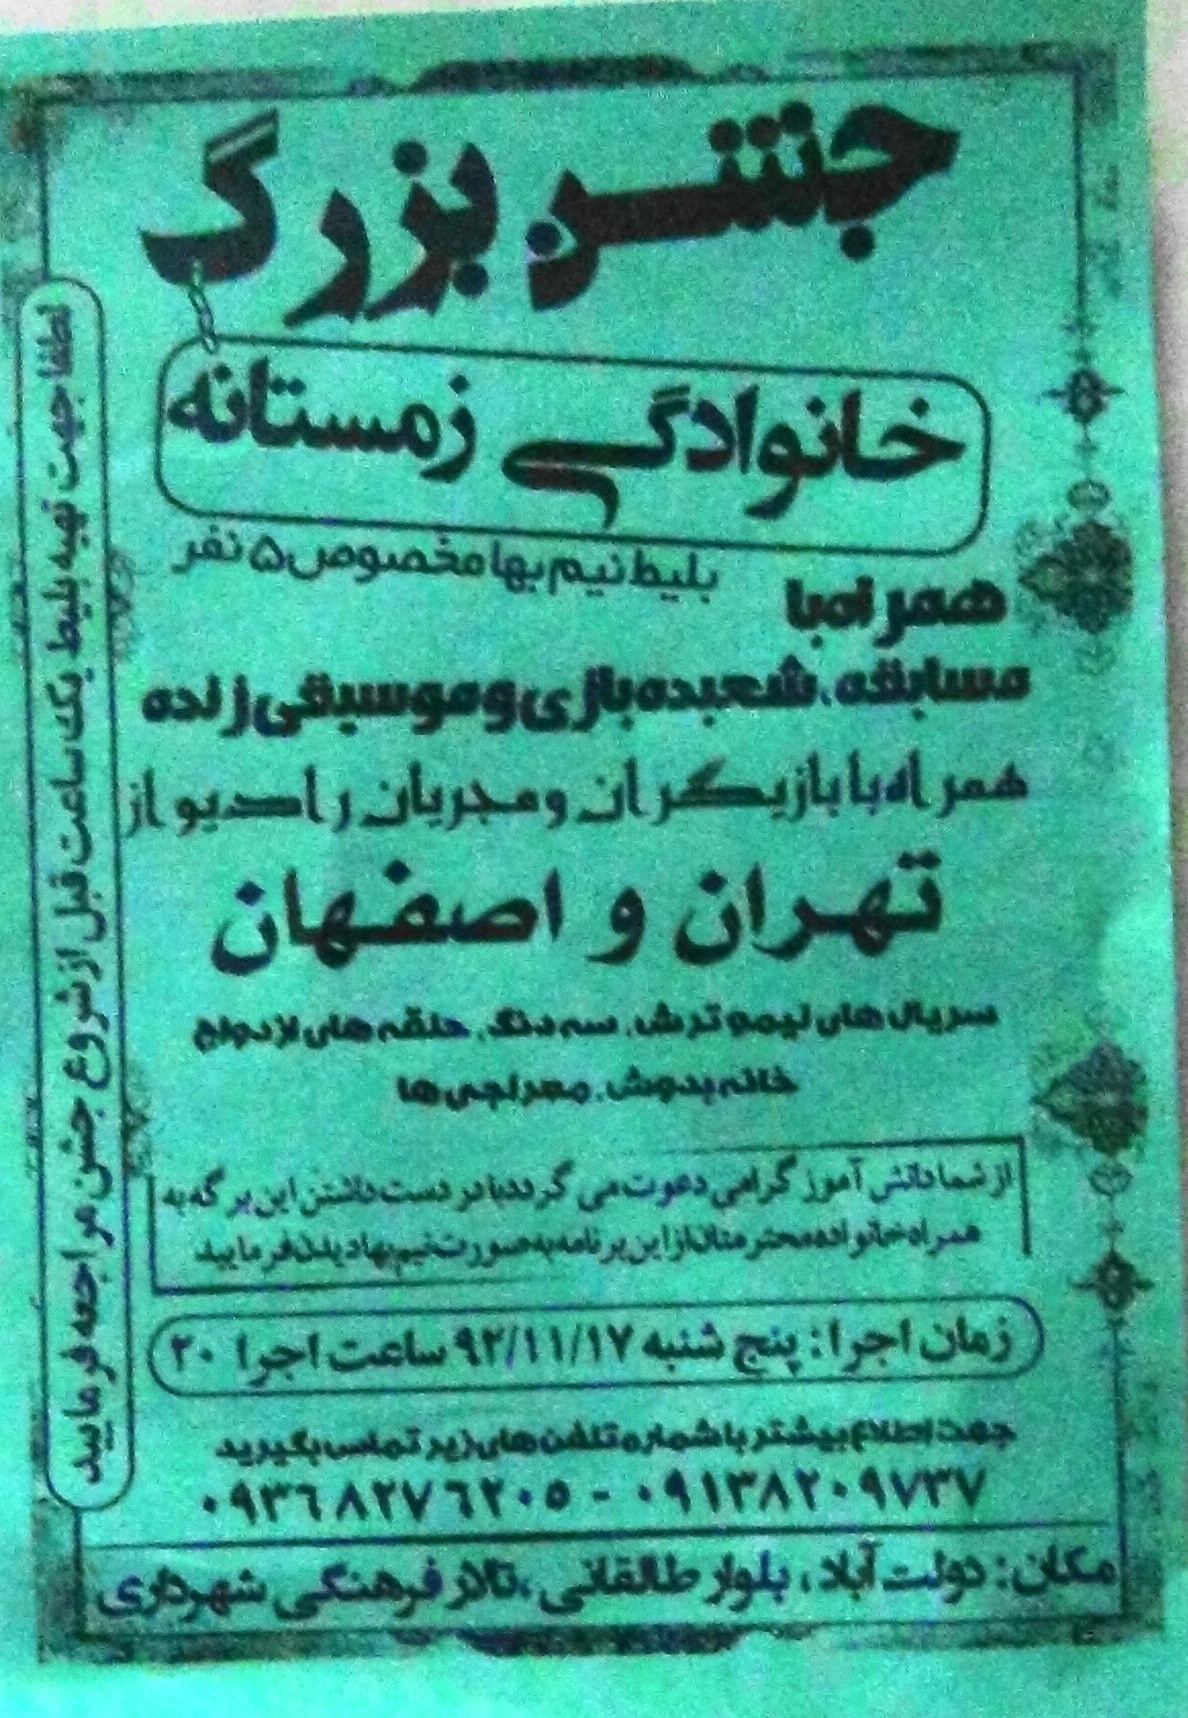 جشن بزرگ
خانوادگی زمستانه
بلیط نیم بها مخصوص ۵ نفر
همراه با
مسابقه، شعبده بازی و موسیقی زنده
همراه با بازیگران و مجریان رادیو از
تهران و اصفهان
سریال های لیمو ترش، سه دنگ، حلقه های ازدواج
خانه بدوش، معراجی ها
از شما دانش آموز گرامی دعوت می گردد با در دست داشتن این برگه به
همراه خانواده محترمتان از این برنامه به صورت نیم بها دیدن فرمایید
زمان اجرا: پنج شنبه ۹۲/۱۱/۱۷ ساعت اجرا ۲۰
جهت اطلاع بیشتر با شماره تلفن های زیر تماس بگیرید
۰۹۱۳۸۲۰۹۷۳۷ - ۰۹۳۶۸۲۷۶۲۰۵
مکان: دولت آباد، بلوار طالقانی، تالار فرهنگی شهرداری
لطفا جهت تهیه بلیط یک ساعت قبل از شروع جشن مراجعه فرمایید